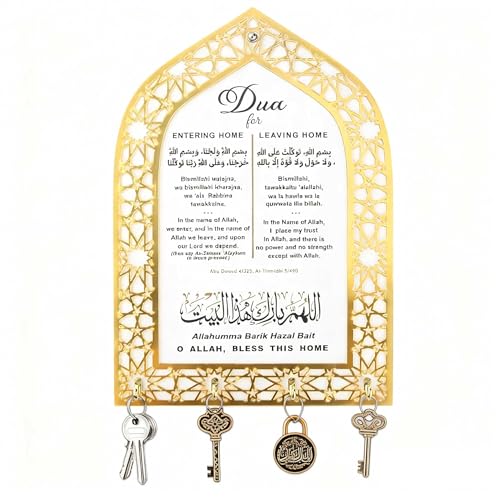 Dua
for
ENTERING HOME
بِسْمِ اللَّهِ وَلَجْنَا، وَبِسْمِ اللَّهِ
خَرَجْنَا، وَعَلَى اللَّهِ رَبِّنَا تَوَكَّلْنَا
Bismillahi walajna,
wa bismillahi kharajna,
wa 'ala Rabbina
tawakkalna.
...
In the name of Allah,
we enter, and in the name of
Allah we leave, and upon
our Lord we depend.
LEAVING HOME
بِسْمِ اللَّهِ، تَوَكَّلْتُ عَلَى اللَّهِ
، وَلَا حَوْلَ وَلَا قُوَّةَ إِلَّا بِاللَّهِ
Bismillahi,
tawakkaltu 'alallahi,
wa la hawla wa la
quwwata illa billah.
...
In the Name of Allah,
I place my trust
in Allah, and there is
no power and no strength
except with Allah.
Abu Dawud 4/325, At-Tirmidhi 5/490
اللهم بارك هذا البيت
Allahumma Barik Hazal Bait
O ALLAH, BLESS THIS HOME